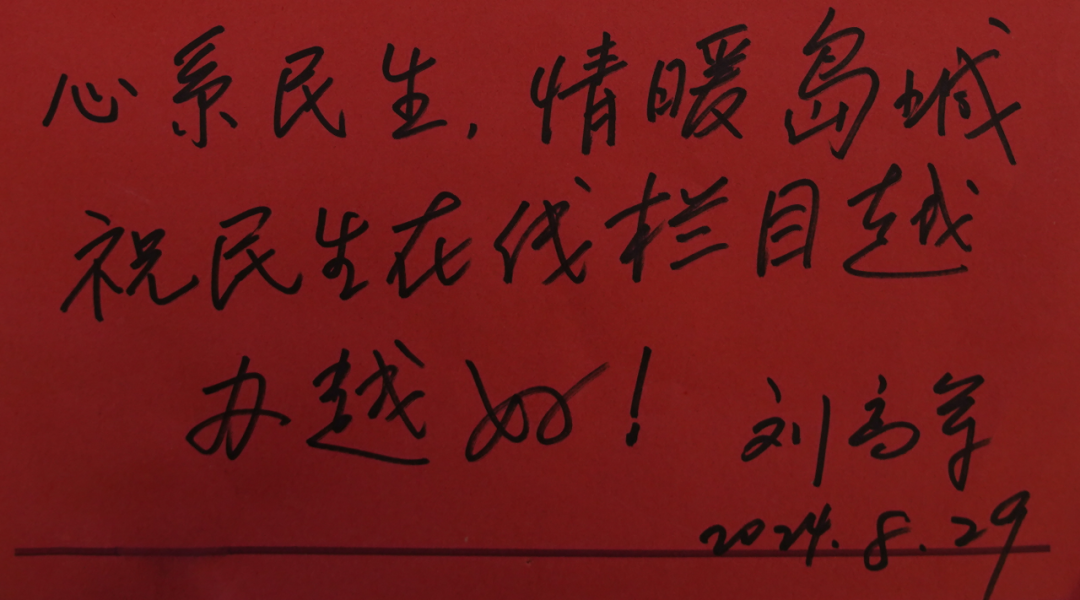 心系民生，情暖岛城
祝民生在线栏目越
办越好！
刘高军
2024.8.29